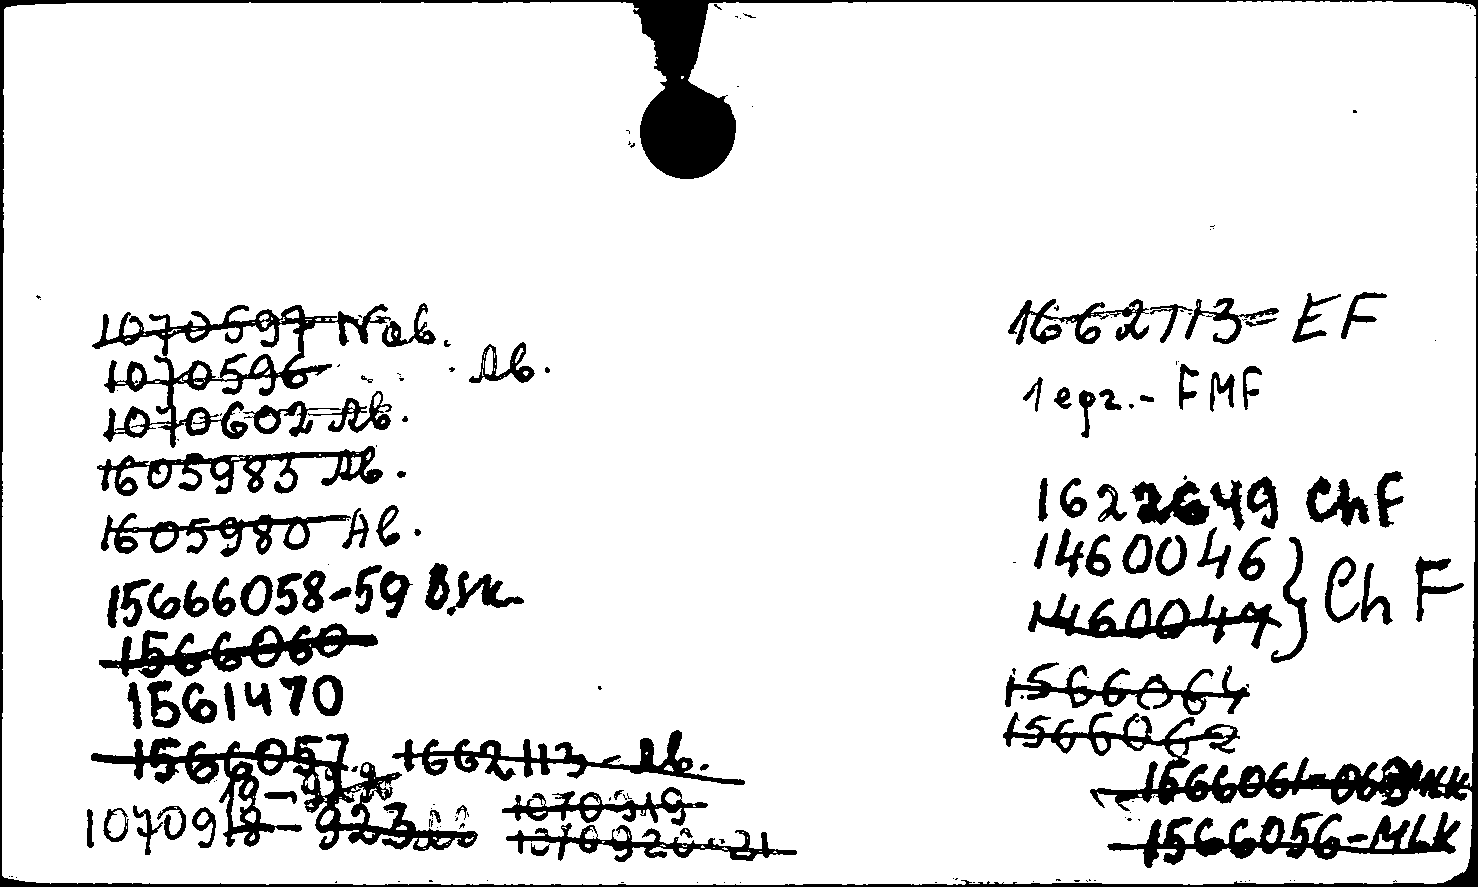 1070597 Nab.
1070596 Ab.
1070602 Ab.
1605983 Ab.
1605980 Ab.
15666058-59
1566060
1561470
1566057 1662113 - Ab.
1070918 - 923 1070919
1070920-21
1662113 = EF
1 egz.- FMF
1622649 ChF
1460046 } ChF
1460047
1566064
1566062
1566061-063
1566056-MLK